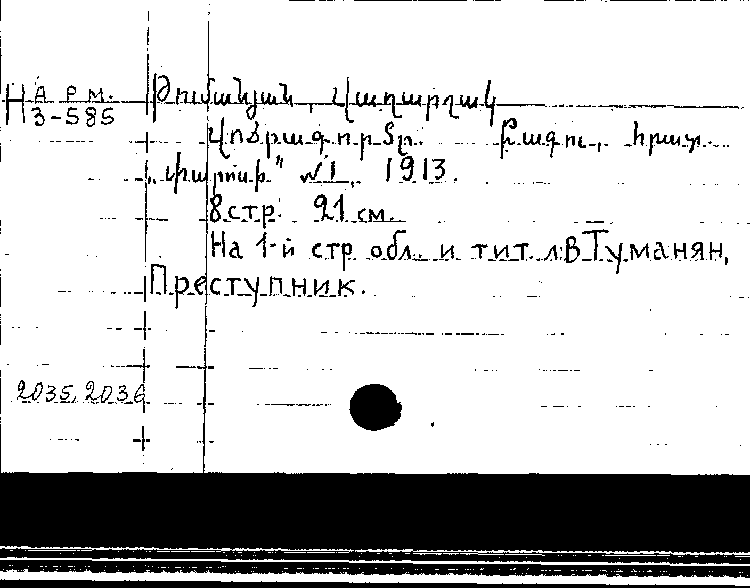 Н А Р М.
3-585
Թումանյան, Վաղարշակ
Ոճրագործը. Բագու, հրատ.
"Փարոս" №1, 1913.
8 стр. 21 см.
На 1-й стр обл. и тит л: В Туманян,
Преступник.
2035, 2036